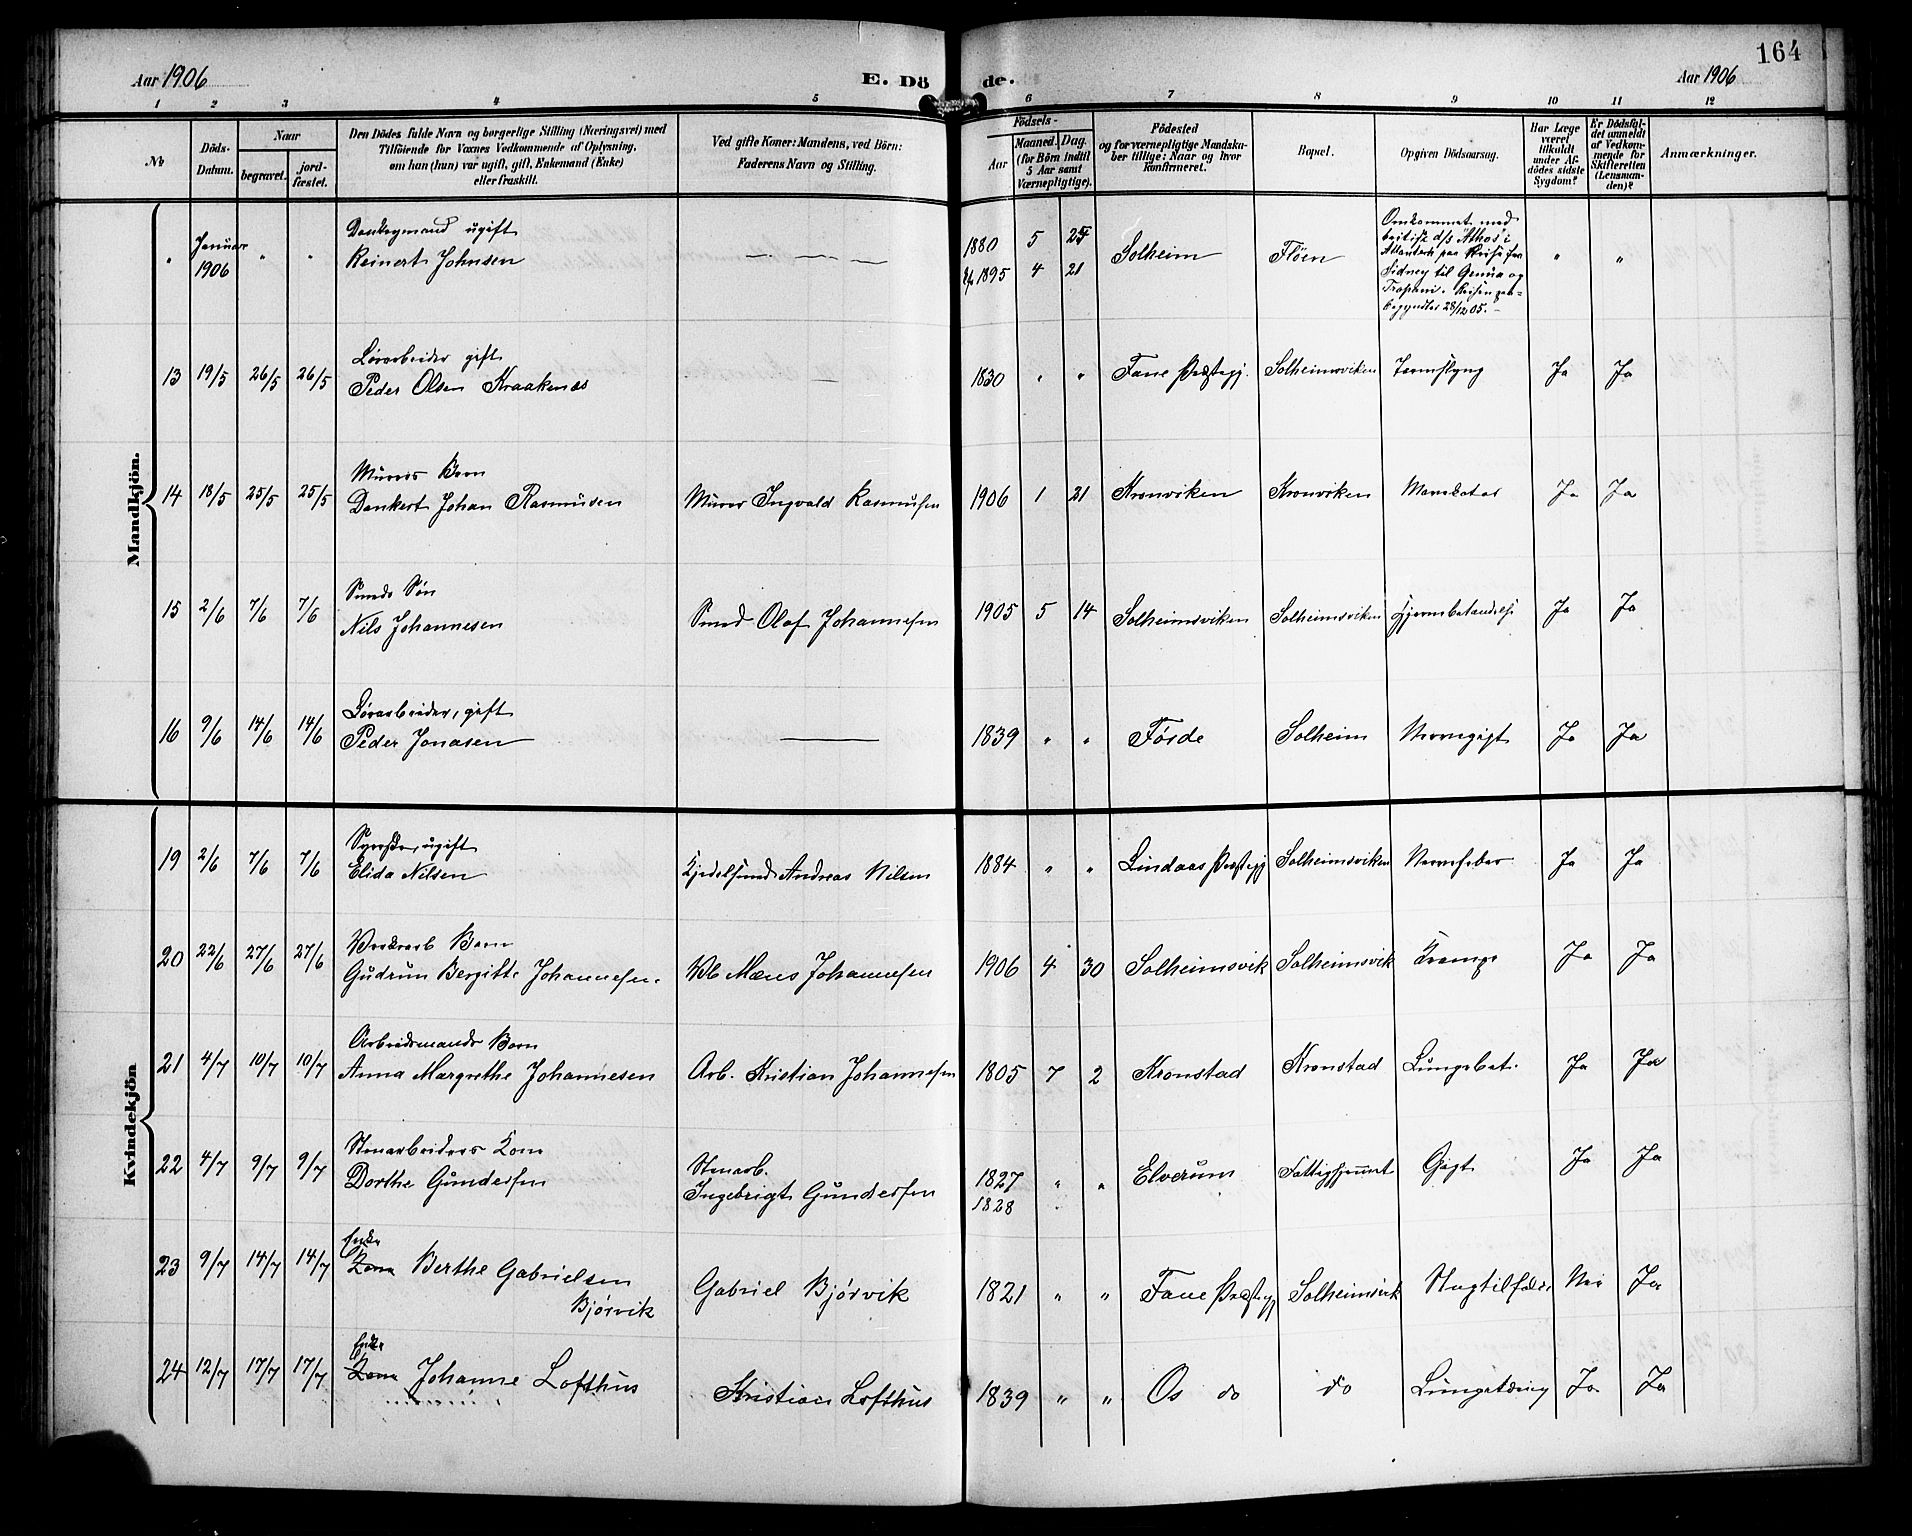 164
Aar 1906
E. Dö
de.
Aar 1906
1 2 3 4 5 6 7 8 9 10 11 12
No
Döds-
Datum.
Naar
begravet.
jord-
fæstet.
Den Dödes fulde Navn og borgerlige Stilling (Næringsvei) med
Tilföiende for Voxnes Vedkommende af Oplysning,
om han (hun) var ugift, gift, Enkemand (Enke)
eller fraskilt.
Ved gifte Koner: Mandens, ved Börn:
Faderens Navn og Stilling.
Födsels-
Aar
Maaned. Dag.
(for Börn indtil
5 Aar samt
Værnepligtige).
Födested
og for værnepligtige Mandska-
ber tillige: Naar og hvor
konfirmeret.
Bopæl.
Opgiven Dödsaarsag.
Har Læge
været
tilkaldt
under Af-
dödes sidste
Sygdom?
Er Dödsfal-
det anmeldt
af Vedkom-
mende for
Skifteretten
(Lensman-
den)?
Anmærkninger.
Mandkjön.
Donkeymand ugift
" Januar 1906 " " Reinert Johnsen — — —
1880 5 Solheim Fløen
1895 4 21
Omkommet med
britisk d/s "Athos" i
Atlanterh. paa Reise fra
Sidney til Genua og
Trapani. Reisen paa-
begyndtes 28/12 05. —
" "
Løsarbeider gift
13 19/5 26/5 26/5 Peder Olsen Kraakenæs — 1830 " " Fane Præstegj. Solheimsviken Ja Ja
Murers Barn
14 18/5 25/5 25/5 Dankert Johan Rasmussen Murer Ingvald Rasmussen 1906 1 21 Kronviken Kronviken Ja Ja
Smeds Søn
15 2/6 7/6 7/6 Nils Johannesen Smed Olaf Johannessen 1905 5 14 Solheimsviken Solheimsviken Hjernebetændelse Ja Ja
Løsarbeider, gift
16 9/6 14/6 14/6 Peder Jonasen — 1839 " " Førde Solheim Nervegigt Ja Ja
Kvindekjön
Syerske, ugift
19 2/6 7/6 7/6 Elida Nilsen Kjedelsmed Andreas Nilsen 1884 " " Lindaas Præstegj Solheimsviken Nervefeber Ja Ja
Værksarb Barn
20 22/6 27/6 27/6 Gudrun Bergitte Johannessen. Vb Mæns Johannessen 1906 4 30 Solheimsvik Solheimsvik Krampe Ja Ja
Arbeidsmands Barn
21 4/7 10/7 10/7 Anna Margrethe Johannesen Arb. Kristian Johannessen 1805 7 2 Kronstad Kronstad Lungebet. Ja Ja
Stenarbeiders Kone
22 4/7 9/7 9/7 Dorthe Gundersen Stenarb.
Ingebrigt Gundersen 1827 " " Elverum Fattighjemmet Gigt Ja Ja
1828
Enke
23 9/7 14/7 14/7 Kone Berthe Gabrielsen
Bjørvik
Gabriel Bjørvik 1821 " " Fane Præstegj Solheimsvik Slagtilfælde Nei Ja
Enke
24 12/7 17/7 17/7 Kone Johanne Lofthus Kristian Lofthus 1839 " " Os do do Lungetæring Ja Ja